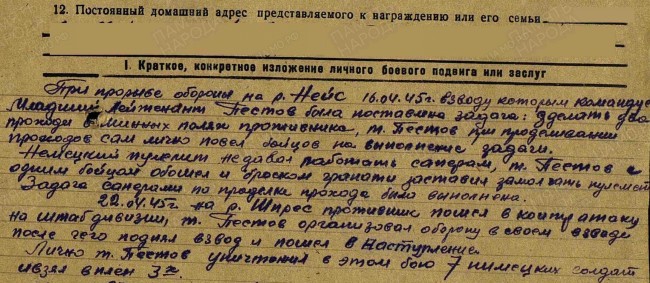 12. Постоянный домашний адрес представляемого к награждению или его семьи
I. Краткое, конкретное изложение личного боевого подвига или заслуг
При прорыве обороны на р. Нейс 16.04.45г. взводу которым командует
младший лейтенант Пестов была поставлена задача: зделать два
прохода в минных полях противника, т. Пестов при проделывании
проходов сам лично повел бойцов на выполнение задачи.
Немецкий пулемет не давал работать саперам, т. Пестов с
одним бойцом обошел и броском гранаты заставил замолчать пулемет
Задача саперами по проделке прохода была выполнена.
22.04.45г на р. Шпрее противник пошел в контратаку
на штаб дивизии, т. Пестов организовал оборону в своем взводе
после чего поднял взвод и пошел в наступление.
Лично т. Пестов уничтожил в этом бою 7 нимецких солдат
и взял в плен 3х.